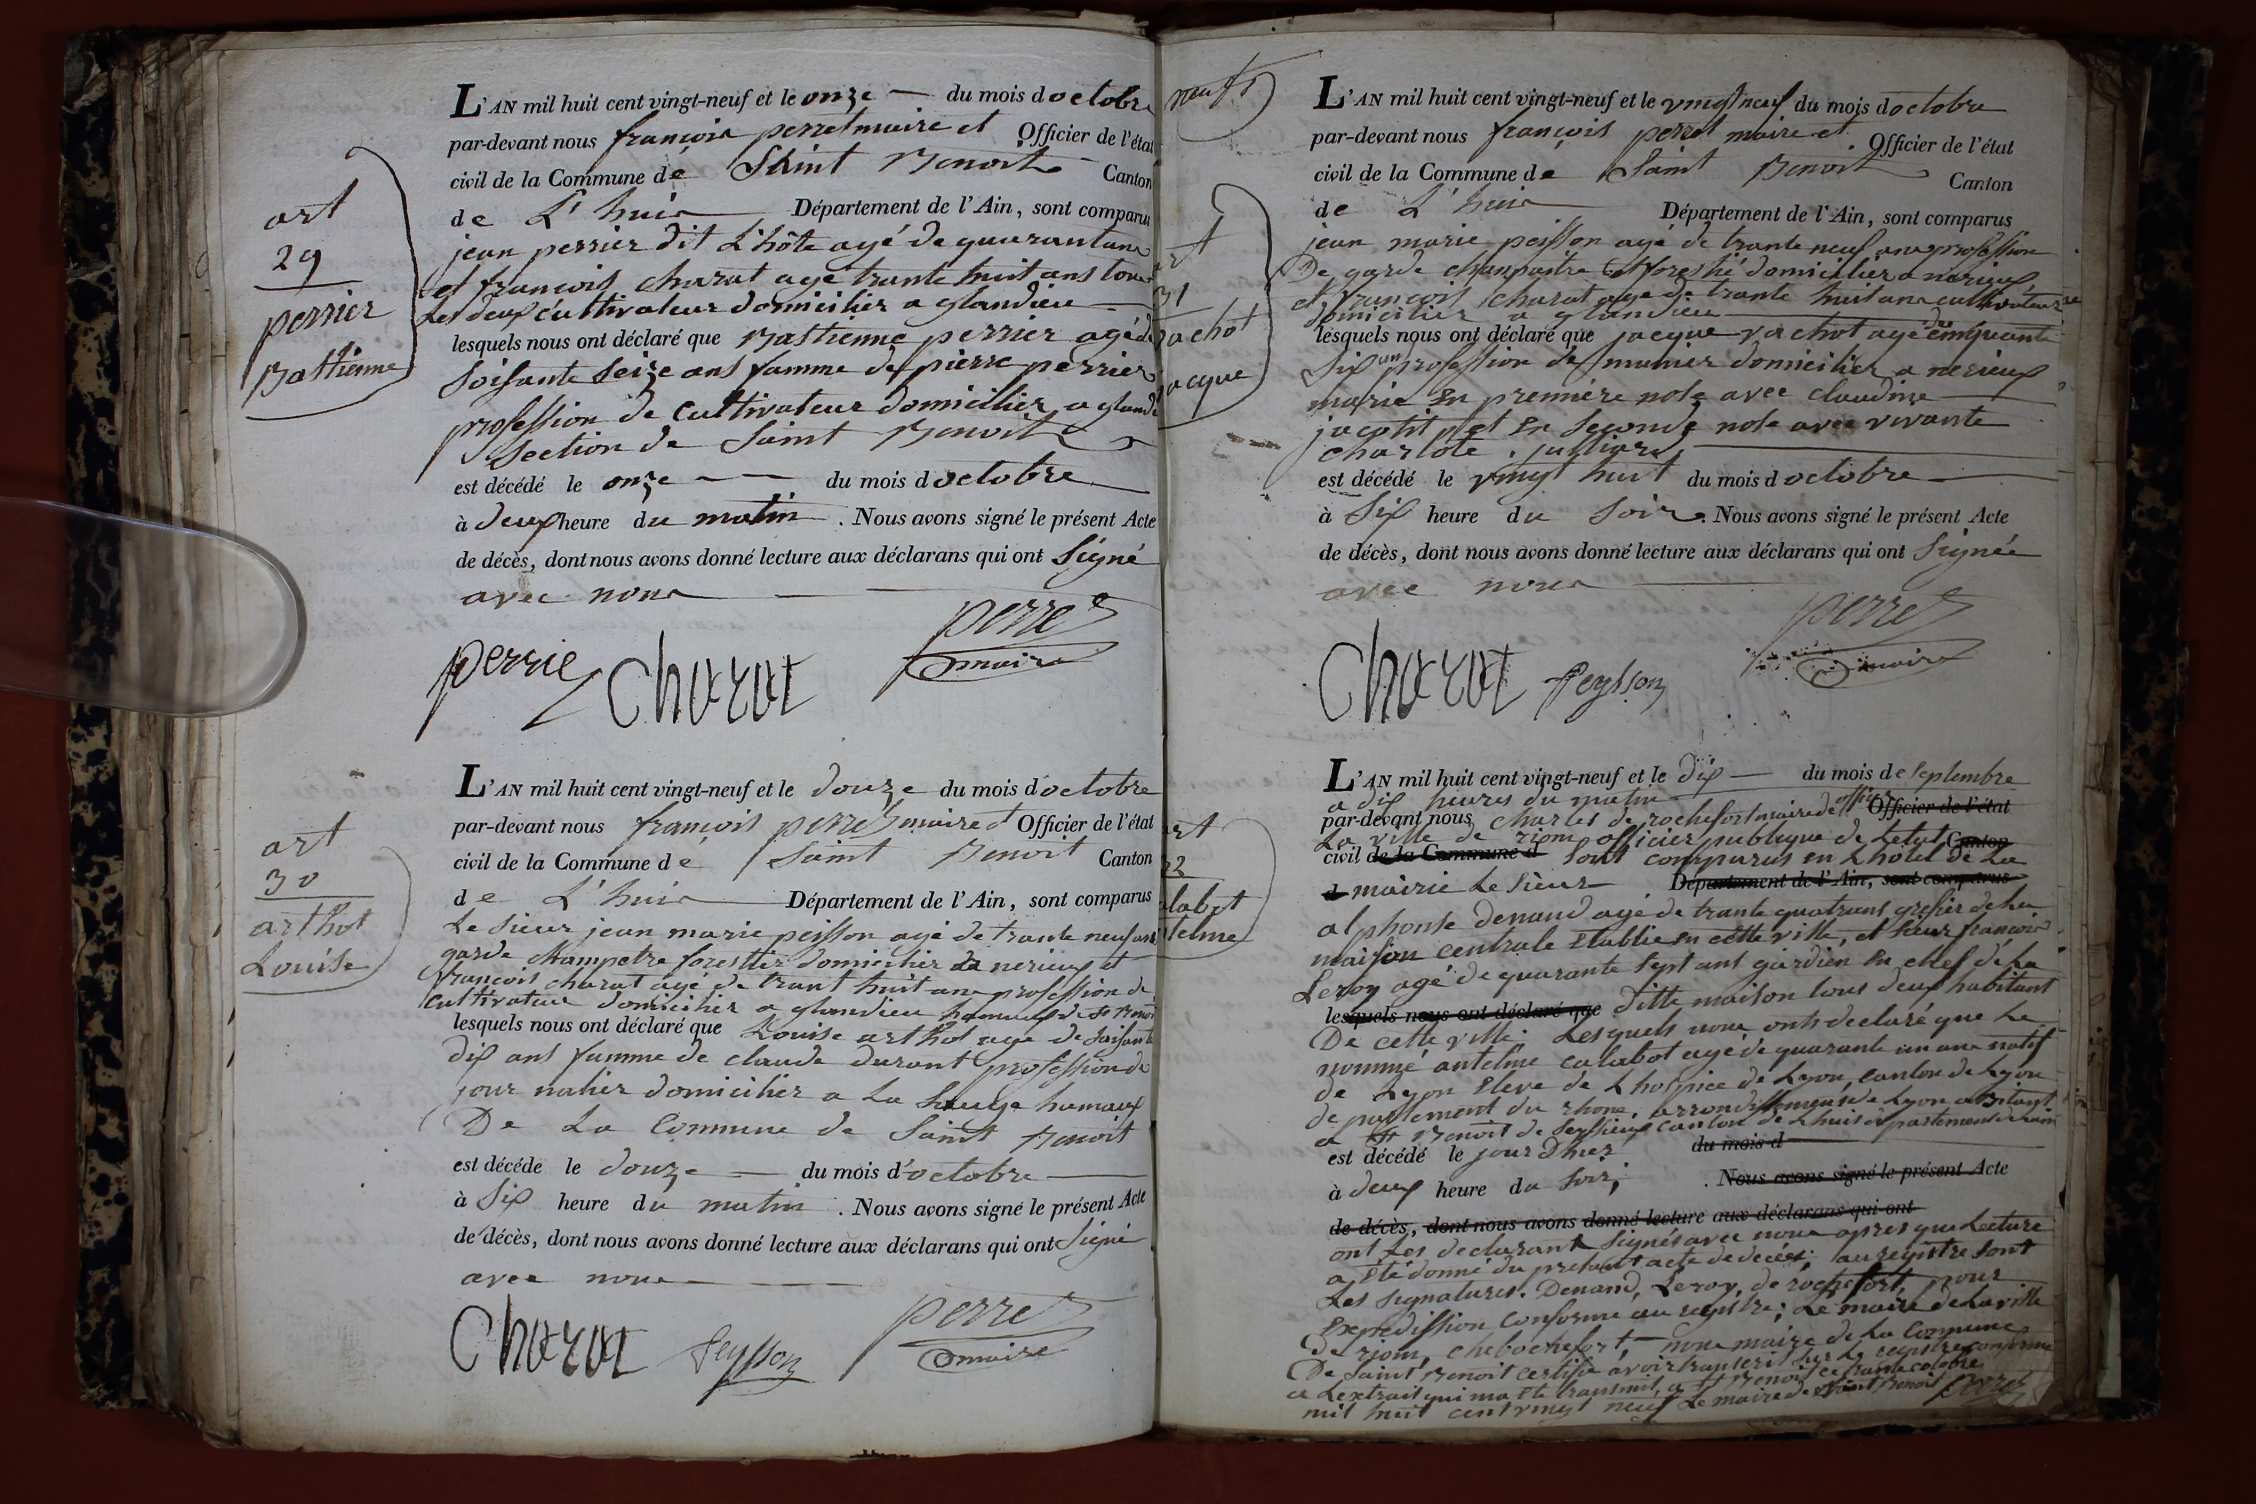 L'AN mil huit cent vingt-neuf et le onze du mois doctobre
par-devant nous françois perret maire et Officier de l'état
civil de la Commune de Saint Benoit Canton
de L'huis Département de l'Ain, sont comparus
art
29
perrier
Bastienne
jean perrier dit L'hôte agé de quarantans
et françois charat age trante huit ans tous
Les deux cultivateur domicilier a glandieu
lesquels nous ont déclaré que Bastienne perrier agé de
Soisante Seize ans famme de pierre perrier
profession de cultivateur domicilier a gland
Section de Saint Benoit
est décédé le onze du mois doctobre
à deux heure du matin . Nous avons signé le présent Acte
de décès, dont nous avons donné lecture aux déclarans qui ont Signé
avec nous
perrie Charat perret
maire
L'AN mil huit cent vingt-neuf et le douze du mois d'octobre
par-devant nous françois perret maire et Officier de l'état
civil de la Commune de Saint Benoit Canton
de L'huis Département de l'Ain, sont comparus
art
30
arthot
Louise
Le Sieur jean marie peisson agé de trante neuf ans
garde champetre forestier domicilier a nerieux et
françois charat agé de trant huit ans profession de
cultivateur domicilier a glandieu hameux de St Benoit
lesquels nous ont déclaré que Louise arthot age de Soisante
dix ans famme de claude durant profession de
jour nalier domicilier a La hameux
De La Commune de Saint Benoit
est décéde le douze du mois d'octobre
à Six heure du matin . Nous avons signé le présent Acte
de décès, dont nous avons donné lecture aux déclarans qui ont Signé
avec nous
Charat Peysson perret
maire
L'AN mil huit cent vingt-neuf et le vingt neuf du mois doctobre
par-devant nous françois perret maire et Officier de l'état
civil de la Commune de Saint Benoit Canton
de L'huis Département de l'Ain, sont comparus
31
vachot
jacque
jean marie peisson agé de trante neuf ans profession
De garde chanpaitre et forestié domicilier a nerieux
et françois charat age de trante huit ans cultivateur
domicilier a glandieu
lesquels nous ont déclaré que jacque vachot agé de cinquante
Six ans profession de domicilier a nerieux
marié En première nose avec claudine
et En Seconde nose avec vivante
charlote jullian
est décédé le vingt huit du mois d octobre
à Six heure du Soir . Nous avons signé le présent Acte
de décès, dont nous avons donné lecture aux déclarans qui ont Signée
avec nous
Charat Peysson perret
maire
L'AN mil huit cent vingt-neuf et le dix du mois de Septembre
a dix heures du matin
par-devant nous charles de rochefort maire de officier Officier de l'état
La ville de riom officier publique de Letat Canton
civil de la Commune d Sont comparus en Lhotel de La
d mairie Le Sieur Département de l'Ain, sont comparus
32
calabot
antelme
alphonse denand agé de trante quatreans grefier de La
maison centrale Etablie En cette ville, et Sieur françois
Leroy agé de quarante Sept ans gardien En chef de La
lesquels nous ont déclaré que ditte maison tous deux habitant
De cette ville; Lesquels nous onts declaré que Le
nommé antelme calabot agé de quarante un ans natif
de Lyon Eleve de Lhospice de Lyon canton de Lyon
departement du rhone, arrondissement de Lyon abitant
a St Benoit de Seyssieux canton de Lhuis departement de Lain
est décédé le jour dhier du mois d
à deux heure du Soir; . Nous avons signé le présent Acte
de décès, dont nous avons donné lecture aux déclarans qui ont
ont Les declarant Signés avec nous apres que Lecture
a Eté donné du present acte de decées; au registre Sont
Les Signatures. Denand, Leroy, de rochefort, pour
Expedission conforme au registre; Le maire de La ville
De riom, nous maire de La Commune
De Saint Benoit certifie avoir transcrit Sur Le registre conforme
a Lextrait qui ma Eté transmit, a St Benoit ce trante octobre
mil huit cent vingt neuf Le maire de Saint Benoit perret